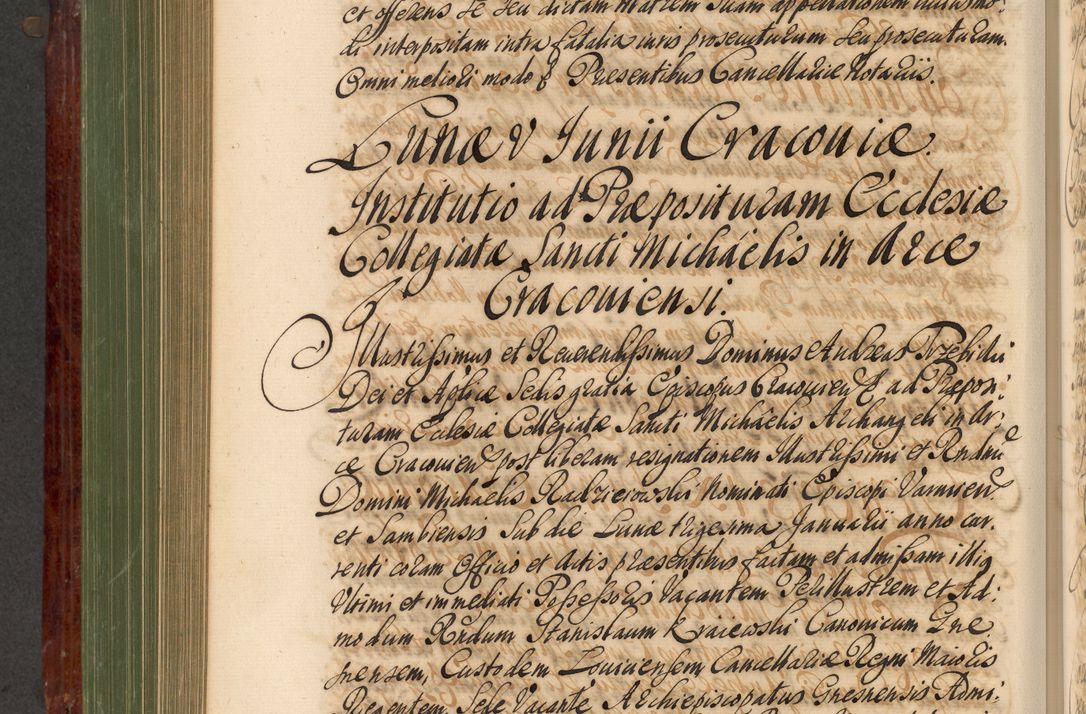 et offerens se seu dictam Matrem suam appellationem
di interpositam intra fatalia iuris prosecuturum seu prosecuturam.
Omni meliori modo & Præsentibus Cancellariæ Notariis.
Lunæ V Junii Cracoviæ.
Institutio ad Præposituram Ecclesiæ
Collegiatæ Sancti Michaëlis in Arce
Cracouiensi.
Illustrissimus et Reuerendissimus Dominus Andreas Trzebicki
Dei et Aplicæ Sedis gratia Episcopus Cracouien & ad Præposi:
turam Ecclesiæ Collegiatæ Sancti Michaëlis Archangeli in Ar,
ce Cracouien post liberam resignationem Illustrissimi et Rndmi
Domini Michaëlis Radzieiowski Nominati Episcopi Varmien
et Sambiensis sub die Lunæ trigesima Januarii anno cur,
renti coram Officio et Actis præsentibus factam et admissam illiq
Vltimi et immediati Possessoris Vacantem Perillustrem et Ad:
modum Rndum Stanislaum Kraiewski Canonicum Gne
snensem, Custodem Louiciensem, Cancellariæ Regni Maioris
Regentem, Sede Vacante Archiepiscopatus Gnesnensis Admi: